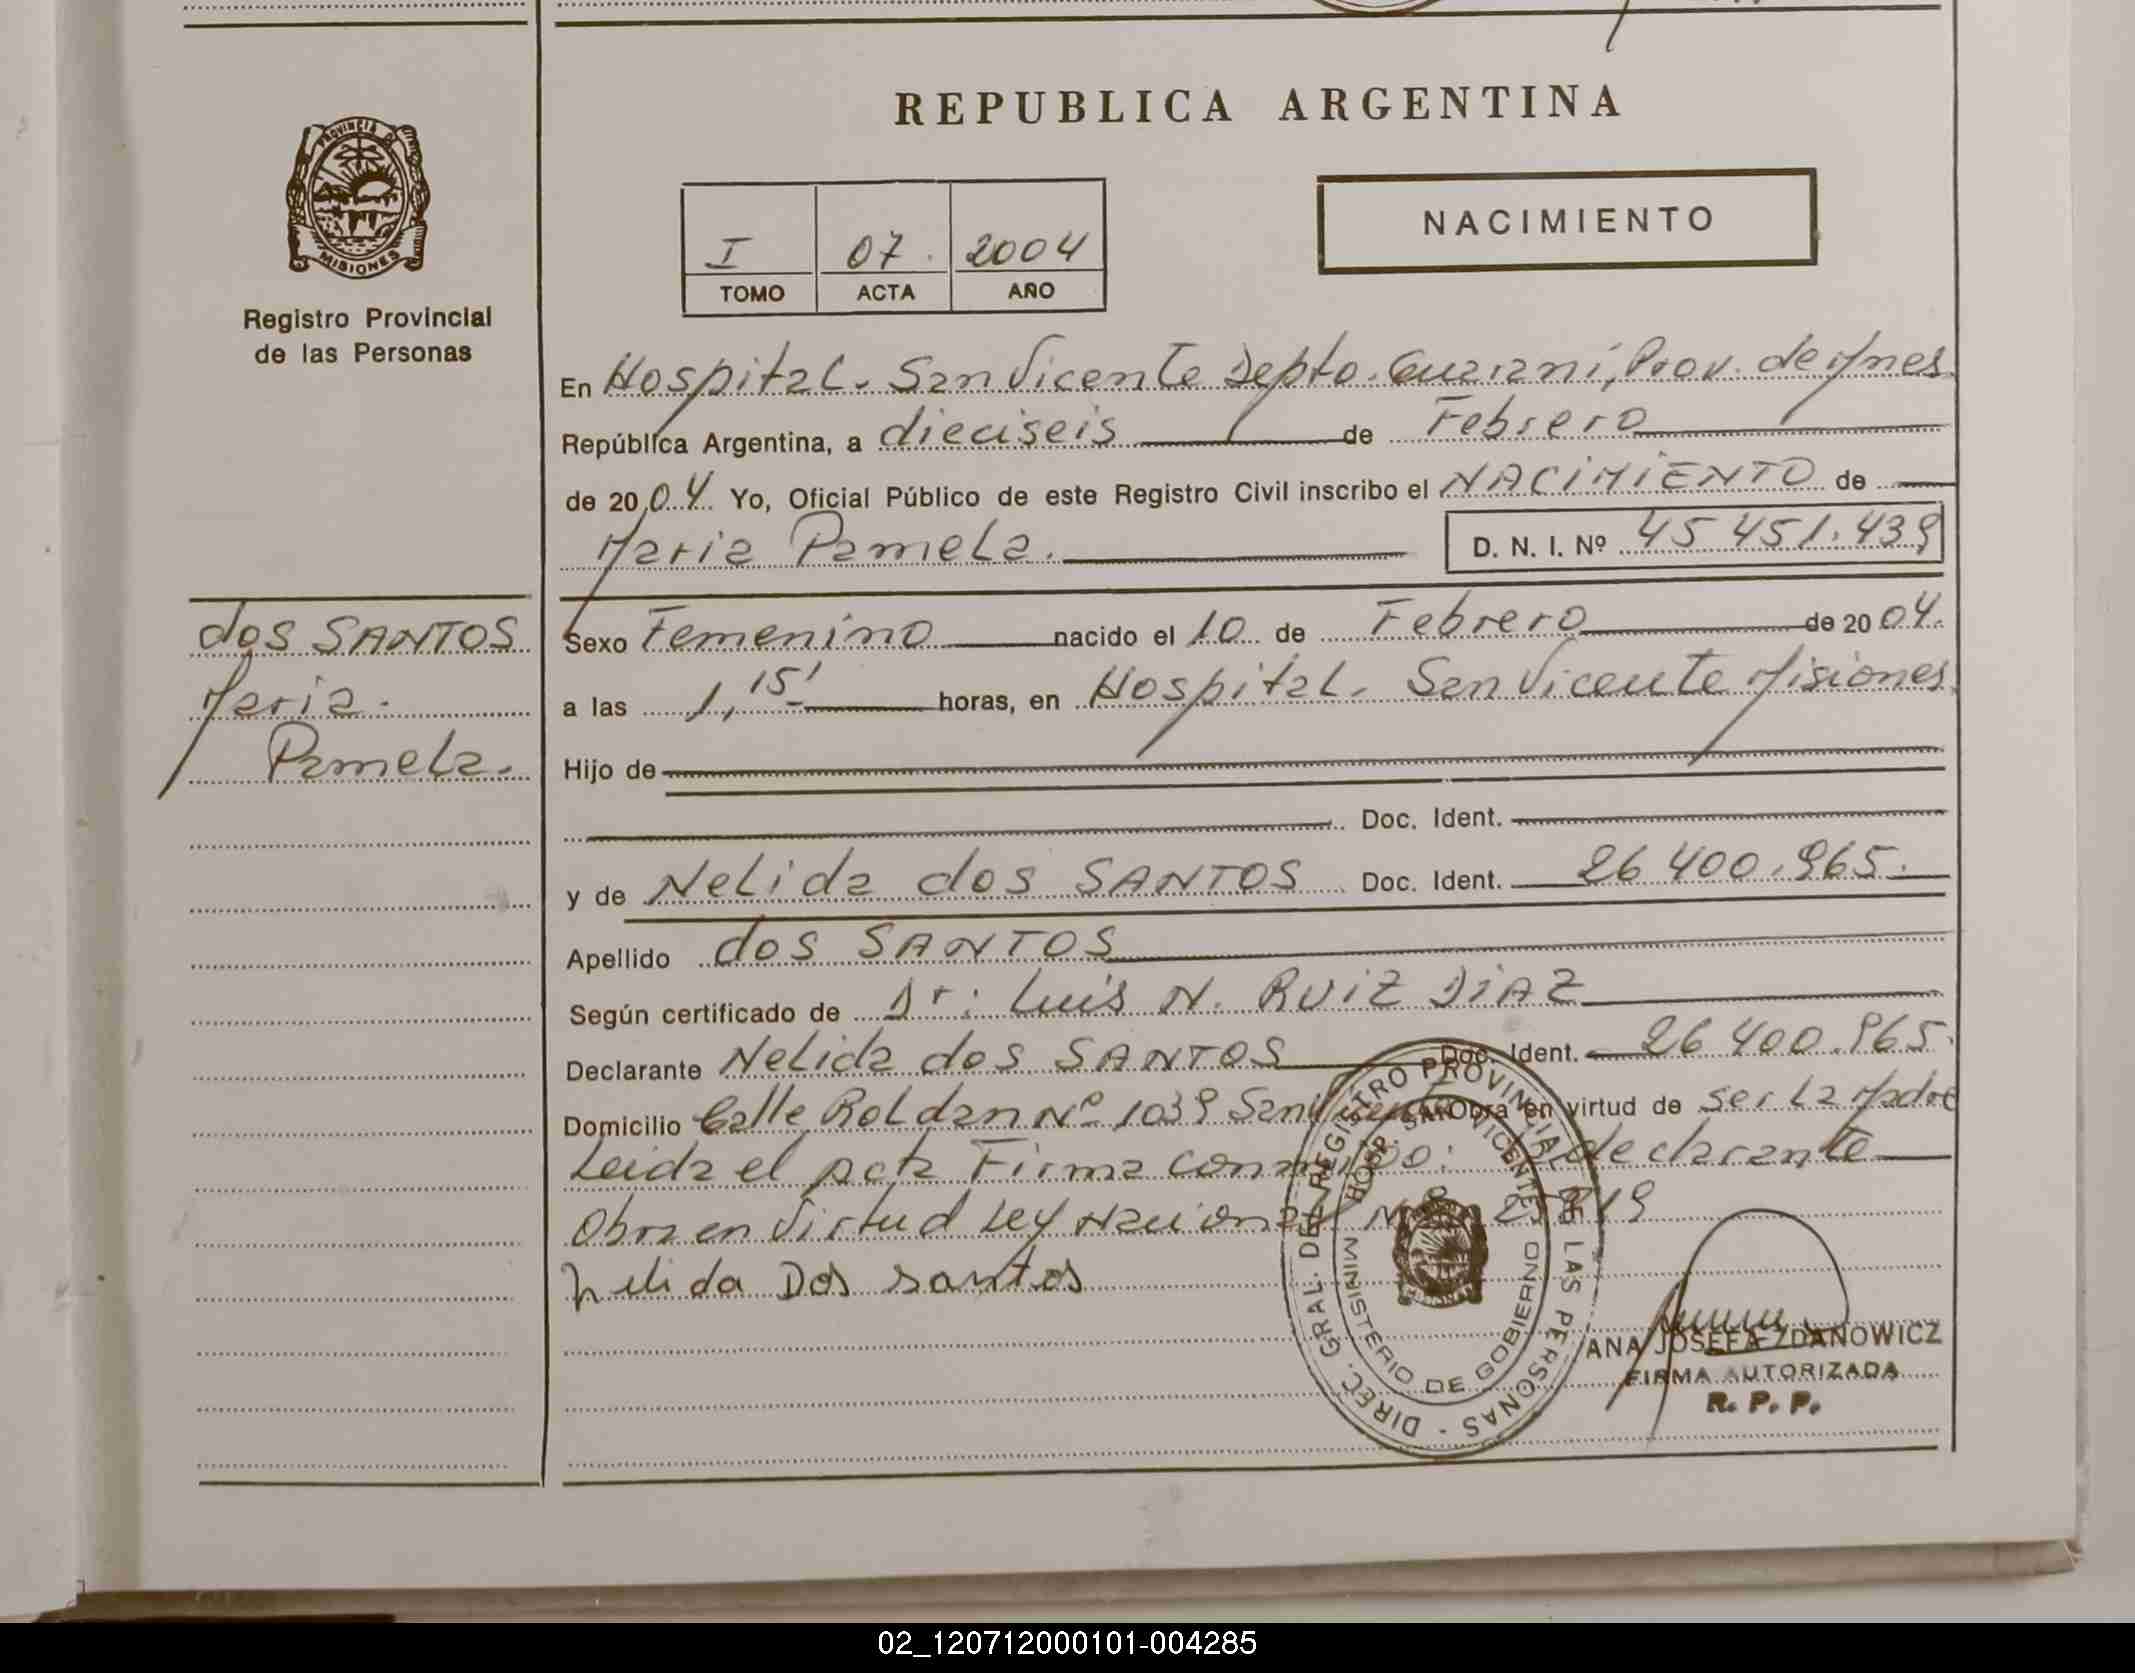 REPUBLICA ARGENTINA
PROVINCIA DE
MISIONES
Registro Provincial
de las Personas
I 07. 2004
TOMO ACTA AÑO
NACIMIENTO
En Hospital. San Vicente Depto. Guarani, Prov. de Mnes.
República Argentina, a dieciseis de Febrero
de 2004. Yo, Oficial Público de este Registro Civil inscribo el NACIMIENTO de
Maria Pamela. D. N. I. Nº 45 451.439
dos SANTOS
Maria.
Pamela.
Sexo Femenino nacido el 10 de Febrero de 2004.
a las 1,15' horas, en Hospital. San Vicente Misiones.
Hijo de
Doc. Ident.
y de Nelida dos SANTOS Doc. Ident. 26 400.965.
Apellido dos SANTOS
Según certificado de Dr: Luis N. RUIZ DIAZ
Declarante Nelida dos SANTOS Doc. Ident. 26 400.965.
Domicilio Calle Roldan Nº 1039 San Vicente Obra en virtud de ser la Madre
Leida el acta Firma conmigo: la declarante
Obra en Virtud Ley Nacional Nº
nelida Dos santos
DIREC. GRAL. DEL REGISTRO PROVINCIAL DE LAS PERSONAS -
HOSP. SAN VICENTE
MINISTERIO DE GOBIERNO
ANA JOSEFA ZDANOWICZ
FIRMA AUTORIZADA
R. P. P.
02_120712000101-004285